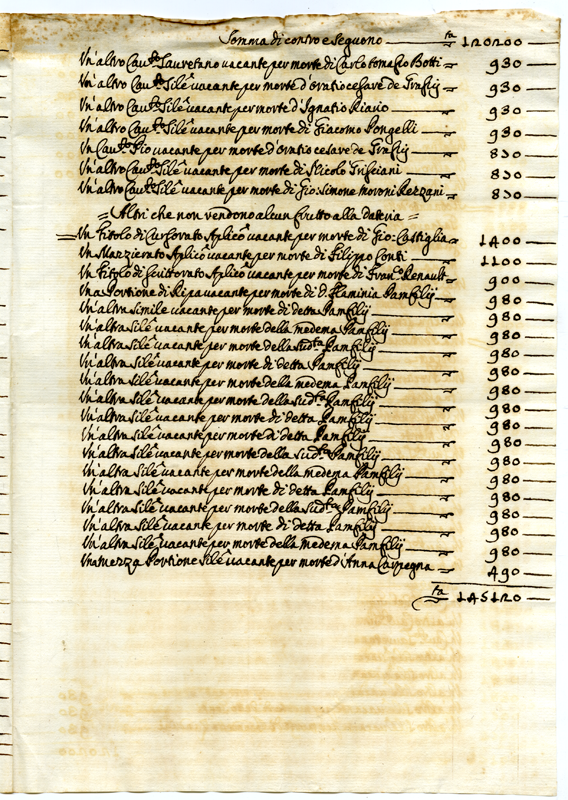 Somma di contro e seguono — ta 120200 —
Un'altro Cavto Lauretano vacante per morte di Carlo tomasso Botti = 930 —
Un'altro Cavto Sile vacante per morte d'Oratio cesare de 930 —
Un'altro Cavto Sile vacante per morte d'Ignatio Riario — 930 —
Un'altro Cavto Sile vacante per morte di Giacomo Pongelli — 930 —
Un Cavto Pio vacante per morte d'Oratio cesare de 830 —
Un'altro Cavto Sile vacante per morte di Nicolo — 830 —
Un'altro Cavto Sile vacante per morte di Gio: Simone moroni Rezzani 830 —
= Altri che non rendono alcun frutto alla dateria =
Un titolo di Cursorato Aplico vacante per morte di Gio: Castiglia 1400 —
Un Mazzierato Aplico vacante per morte di Filippo Conti — 1100 —
Un titolo di Aplico vacante per morte di Franco Renault 900 —
Una Portione di Ripa vacante per morte di D. Flaminia Pamfilij 980 —
Un'altra simile vacante per morte di detta Pamfilij — 980 —
Un'altra Sile vacante per morte della medema Pamfilij — 980 —
Un'altra Sile vacante per morte della sudta Pamfilij — 980 —
Un'altra Sile vacante per morte di detta Pamfilij — 980 —
Un'altra Sile vacante per morte della medema Pamfilij — 980 —
Un'altra Sile vacante per morte della sudta Pamfilij — 980 —
Un'altra Sile vacante per morte di detta Pamfilij — 980 —
Un'altra Sile vacante per morte di detta Pamfilij — 980 —
Un'altra Sile vacante per morte della sudta Pamfilij — 980 —
Un'altra Sile vacante per morte della medema Pamfilij — 980 —
Un'altra Sile vacante per morte di detta Pamfilij — 980 —
Un'altra Sile vacante per morte della sudta Pamfilij — 980 —
Un'altra Sile vacante per morte di detta Pamfilij — 980 —
Un'altra Sile vacante per morte della medema Pamfilij — 980 —
Una mezza Portione Sile vacante per morte d'Anna Carpegna — 490 —
ta 145120 —